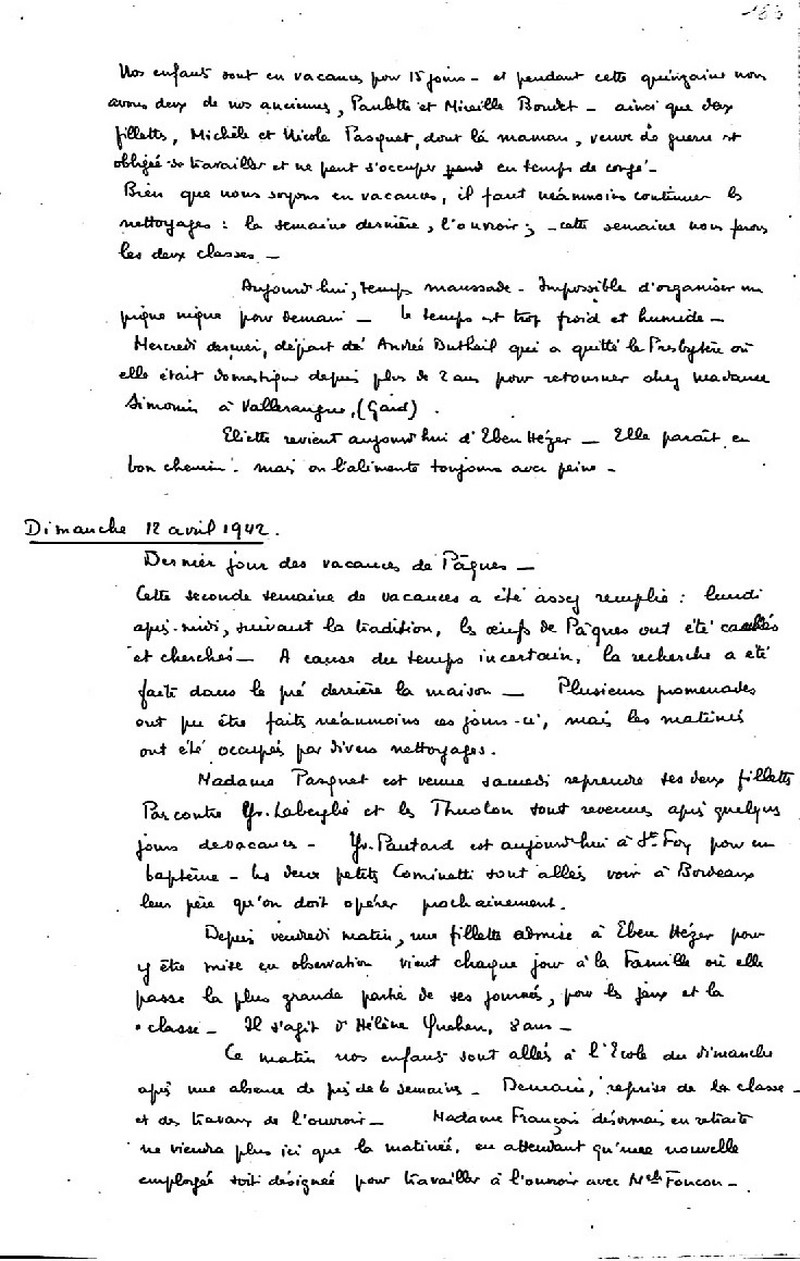 Nos enfants sont en vacances pour 15 jours - et pendant cette quinzaine nous
avons deux de nos anciennes, Paulette et Mireille Boudet - ainsi que deux
fillettes, Michèle et Nicole Pasquet, dont la maman, veuve de guerre est
obligée de travailler et ne peut s'occuper en temps de congé -
Bien que nous soyons en vacances, il faut néanmoins continuer les
nettoyages : la semaine dernière, l'ouvroir ; - cette semaine nous ferons
les deux classes -
Aujourd'hui, temps maussade - Impossible d'organiser un
pique nique pour demain - le temps est trop froid et humide -
Mercredi dernier, départ de Andrée qui a quitté le Presbytère où
elle était domestique depuis plus de 2 ans pour retourner chez Madame
Simonin à Valleraugue, (Gard).
Eliette revient aujourd'hui d'Eben Hézer - Elle paraît en
bon chemin - mais on l'alimente toujours avec peine -
Dimanche 12 avril 1942.
Dernier jour des vacances de Pâques -
Cette seconde semaine de vacances a été assez remplie : lundi
après-midi, suivant la tradition, les œufs de Pâques ont été cachés
et cherchés - A cause du temps incertain, la recherche a été
faite dans le pré derrière la maison - Plusieurs promenades
ont pu être faites néanmoins ces jours-ci, mais les matinées
ont été occupées par divers nettoyages.
Madame Pasquet est venue samedi reprendre ses deux fillettes
Par contre et les sont revenues après quelques
jours de vacances - Yv. Pautard est aujourd'hui à Ste Foy pour un
baptême - les deux petits Cominetti sont allés voir à Bordeaux
leur père qu'on doit opérer prochainement.
Depuis vendredi matin, une fillette admise à Eben Hézer pour
y être mise en observation vient chaque jour à la Famille où elle
passe la plus grande partie de ses journées, pour les jeux et la
classe - Il s'agit d'Hélène 8 ans -
Ce matin nos enfants sont allés à l'Ecole du dimanche
après une absence de près de 6 semaines - Demain, reprise de la classe -
et des travaux de l'ouvroir - Madame François désormais en retraite
ne viendra plus ici que la matinée, en attendant qu'une nouvelle
employée soit désignée pour travailler à l'ouvroir avec Melle Foucou -